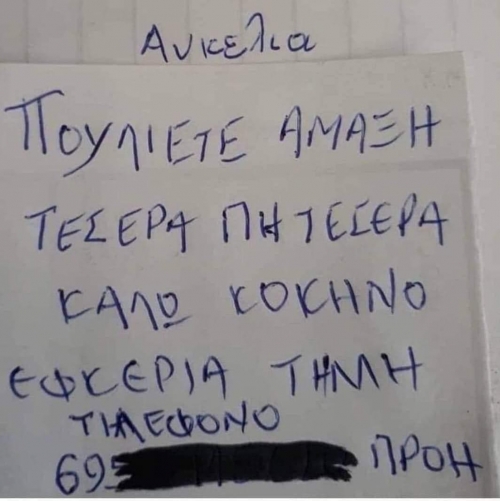 Ανκελια
ΠΟΥΛΙΕΤΕ ΑΜΑΞΗ
ΤΕΣΕΡΑ ΠΗΤΕΣΕΡΑ
ΚΑΛΩ ΚΟΚΗΝΟ
ΕΦΚΕΡΙΑ ΤΗΜΗ
ΤΙΛΕΦΟΝΟ
69 ΠΡΟΗ